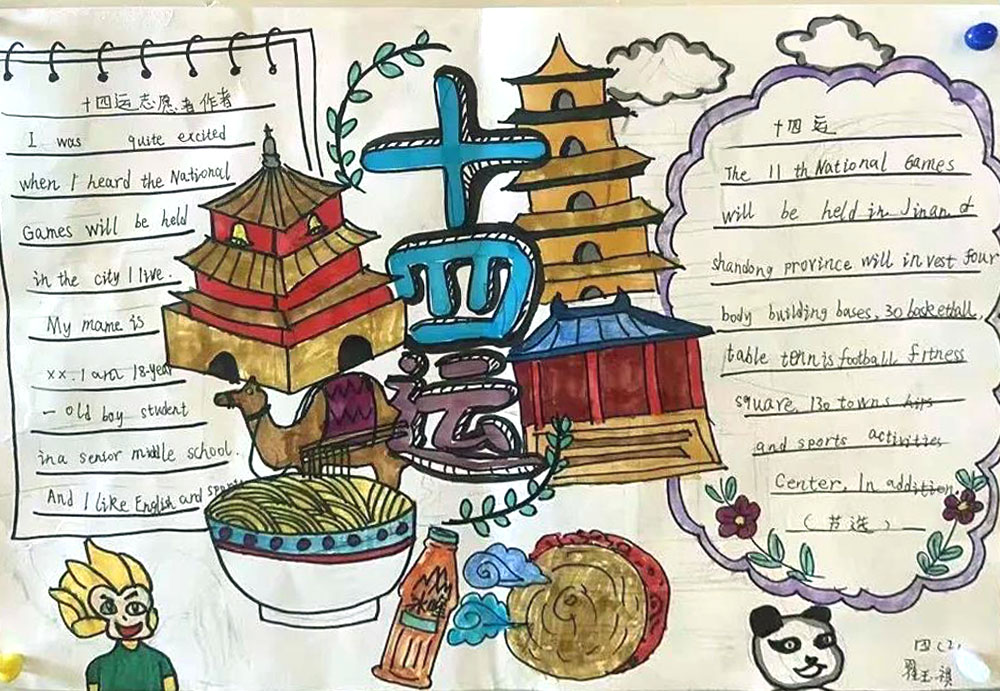 十四运志愿者作者
I was quite excited
when I heard the National
Games will be held
in the city I live.
My mame is
xx. I am 18-year
- old boy student
in a senior middle school.
And I like English and sports
十四运
十四运
The 11 th National Games
will be held in Jinan of
shandong province will in vest four
body building bases, 30 basketball,
table tennis football fitness
square, 130 towns hips
and sports activities
Center, In addition
(节选)
冰峰
四(2)